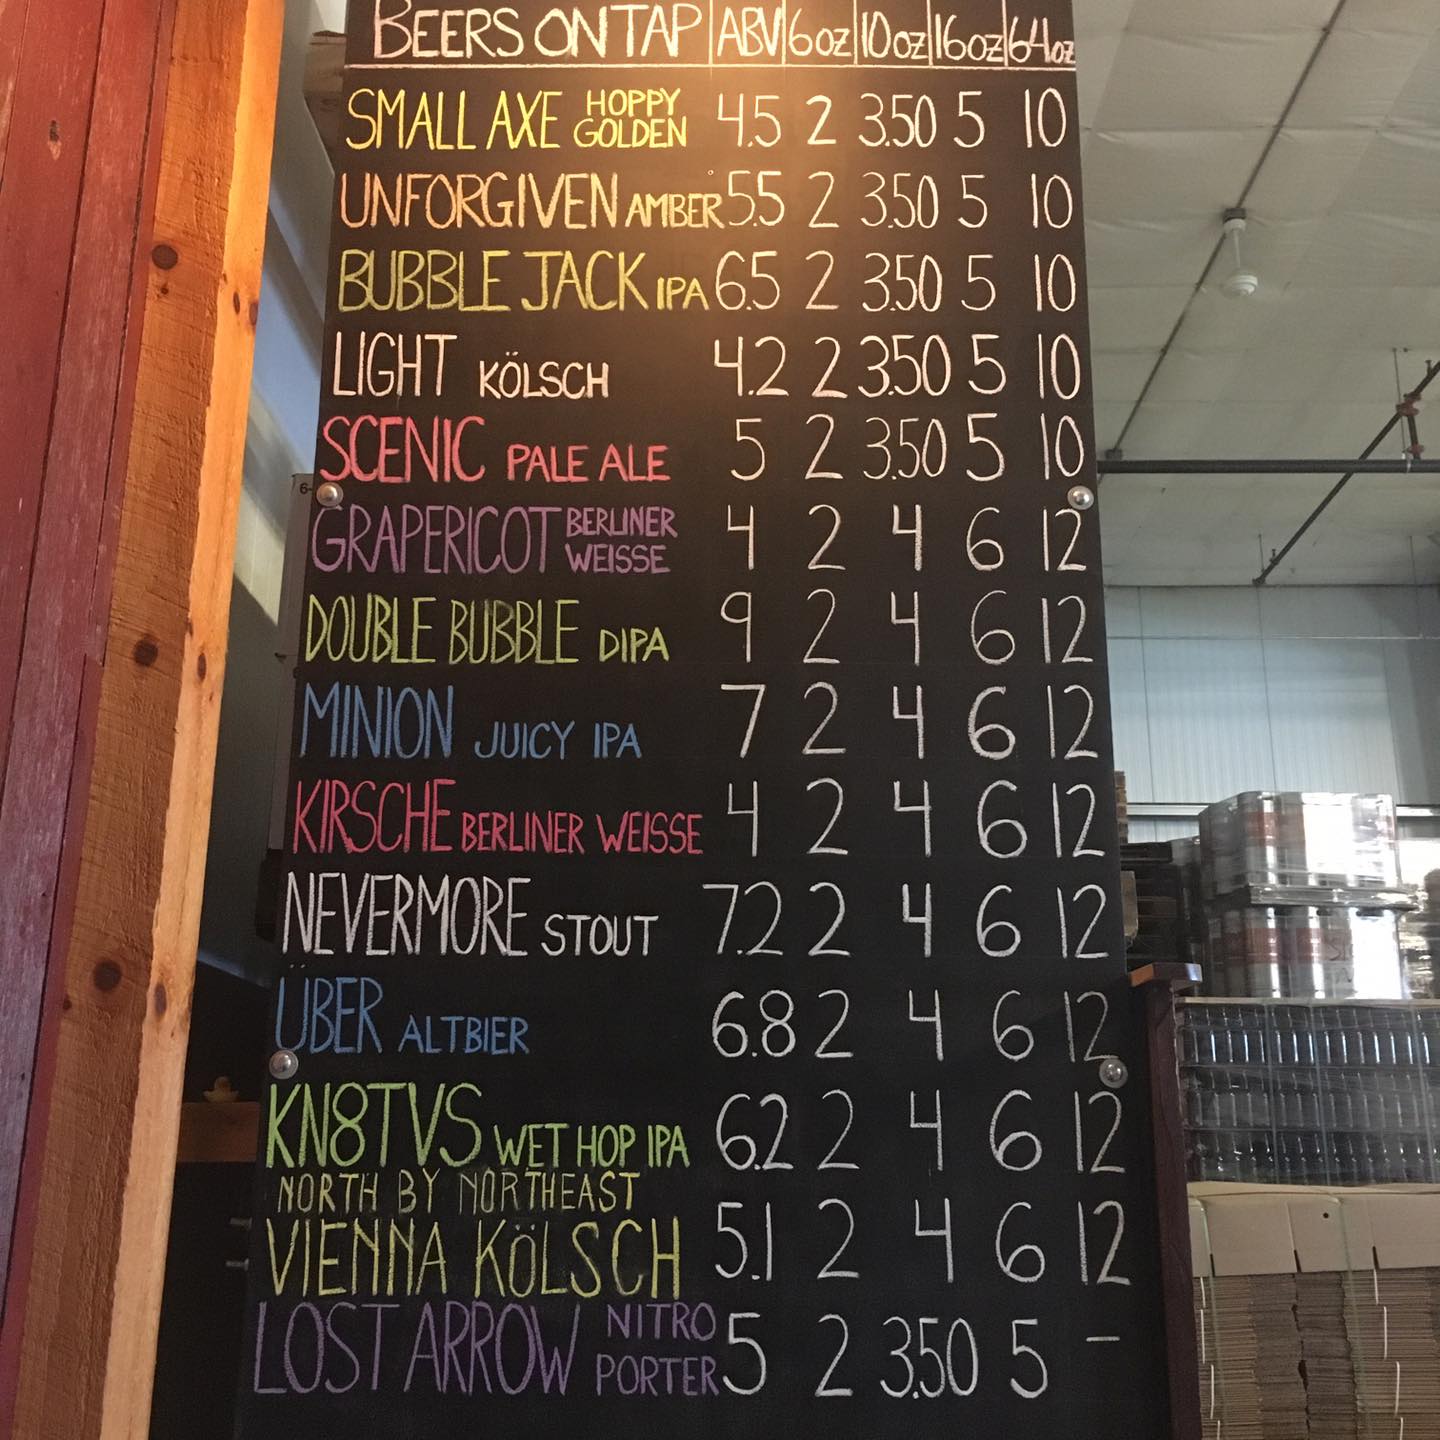 BEERS ON TAP ABV 6oz 10oz 16oz 64oz
SMALL AXE HOPPY GOLDEN 4.5 2 3.50 5 10
UNFORGIVEN AMBER 5.5 2 3.50 5 10
BUBBLE JACK IPA 6.5 2 3.50 5 10
LIGHT KÖLSCH 4.2 2 3.50 5 10
SCENIC PALE ALE 5 2 3.50 5 10
GRAPERICOT BERLINER WEISSE 4 2 4 6 12
DOUBLE BUBBLE DIPA 9 2 4 6 12
MINION JUICY IPA 7 2 4 6 12
KIRSCHE BERLINER WEISSE 4 2 4 6 12
NEVERMORE STOUT 7.2 2 4 6 12
ÜBER ALTBIER 6.8 2 4 6 12
KN8TVS WET HOP IPA 6.2 2 4 6 12
NORTH BY NORTHEAST
VIENNA KÖLSCH 5.1 2 4 6 12
LOST ARROW NITRO PORTER 5 2 3.50 5 –